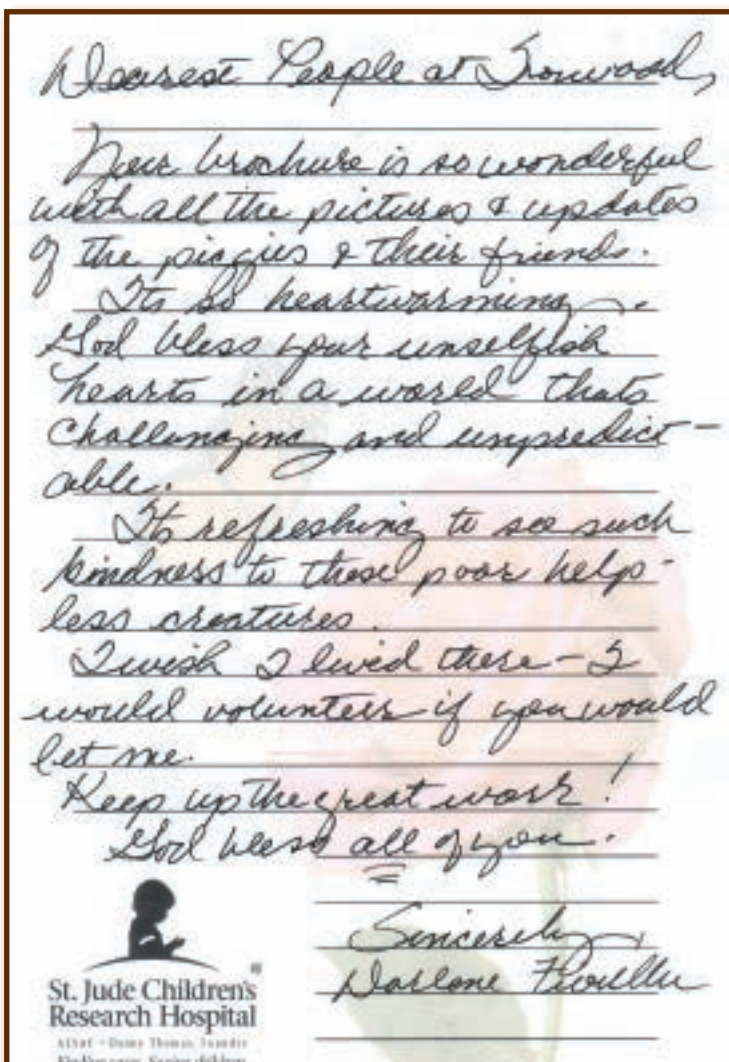 Dearest People at Ironwood,
Your brochure is so wonderful
with all the pictures & updates
of the piggies & their friends.
Its so heartwarming.
God bless your unselfish
hearts in a world thats
challenging and unpredict-
able.
Its refreshing to see such
kindness to these poor help-
less creatures.
I wish I lived there - I
would volunteer if you would
let me.
Keep up the great work!
God bless all of you.
Sincerely,
Darlene
St. Jude Children's
Research Hospital
ALSAC • Danny Thomas, Founder
Finding cures. Saving children.